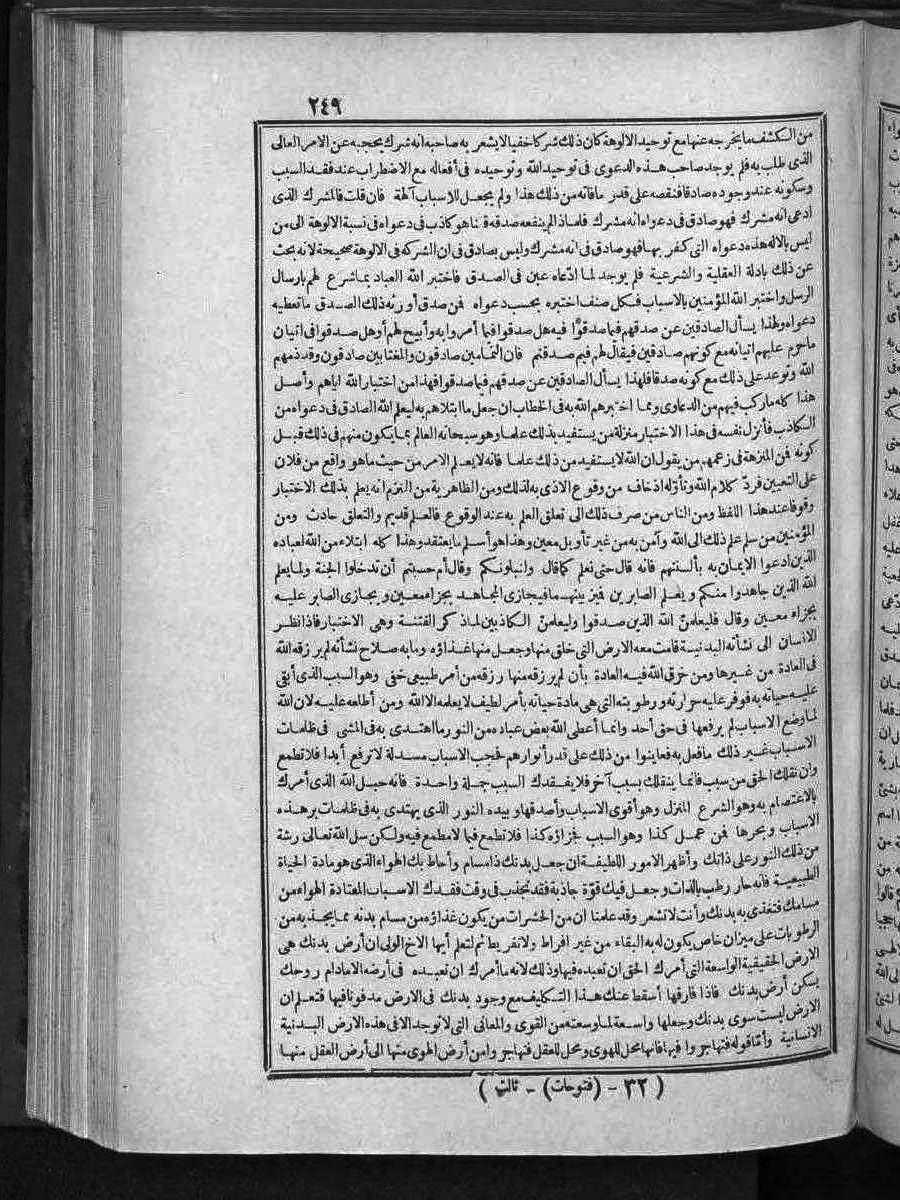 ٢٤٩
من الكشف ما يخرجه عنها مع توحيد الالوهة كان ذلك شركا خفيا لا يشعر به صاحبه انه شرك يحجبه عن الامر العالى
الذى طلب به فلم يوجد صاحب هذه الدعوى فى توحيد الله وتوحيده فى أفعاله مع الاضطراب عند فقد السبب
وسكونه عند وجوده صادقا فنقصه على قدر ما فاته من ذلك هذا ولم يجعل للاسباب آلهة فان قلت فالمشرك الذى
ادعى انه مشرك فهو صادق فى دعواه انه مشرك فلماذا لم ينفعه صدقه قلنا هو كاذب فى دعواه فى نسبة الالوهة الى من
ليس باله هذه دعواه التى كفر بها فهو صادق فى انه مشرك وليس بصادق فى ان الشركة فى الالوهة صحيحة لانه بحث
عن ذلك بادلة العقلية والشرعية فلم يوجد لما ادّعاه عين فى الصدق فاختبر الله العباد بما شرع لهم بارسال
الرسل واختبر الله المؤمنين بالاسباب فكل صنف اختبره بحسب دعواه فمن صدق أورثه ذلك الصدق ما تعطيه
دعواه ولهذا يسأل الصادقين عن صدقهم فيما صدقوا فيه هل صدقوا فيما أمروا به وأبيح لهم أو هل صدقوا فى اتيان
ما حرم عليهم اتيانه مع كونهم صادقين فيقال لهم فيم صدقتم فان النمامين صادقون والمغتابين صادقون وقد ذمهم
الله وتوعد على ذلك مع كونه صدقا فلهذا يسأل الصادقين عن صدقهم فيما صدقوا فهذا من اختبار الله اياهم وأصل
هذا كله ما ركب فيهم من الدعاوى ومما اختبرهم الله به فى الخطاب ان جعل ما ابتلاهم به ليعلم الله الصادق فى دعواه من
الكاذب فأنزل نفسه فى هذا الاختبار منزلة من يستفيد بذلك علما وهو سبحانه العالم بما يكون منهم فى ذلك قبل
كونه فمن المنزهة فى زعمهم من يقول ان الله لا يستفيد من ذلك علما فانه لا يعلم الامر من حيث ما هو واقع من فلان
على التعيين فردّ كلام الله وتأوّله اذ خاف من وقوع الاذى به لذلك ومن الظاهرية من التزم انه يعلم بذلك الاختبار
وقوفا عند هذا اللفظ ومن الناس من صرف ذلك الى تعلق العلم به عند الوقوع فالعلم قديم والتعلق حادث ومن
المؤمنين من سلم علم ذلك الى الله وآمن به من غير تأويل معين وهذا هو أسلم ما يعتقد وهذا كله ابتلاء من الله لعباده
الذين ادعوا الايمان به بألسنتهم فانه قال حتى نعلم كما قال ولنبلونكم وقال أم حسبتم أن تدخلوا الجنة ولما يعلم
الله الذين جاهدوا منكم ويعلم الصابرين فيز بينهما فيجازى المجاهد بجزاء معين ويجازى الصابر عليه
بجزاء معين وقال فليعلمن الله الذين صدقوا وليعلمن الكاذبين لما ذكر الفتنة وهى الاختبار فاذا نظر
الانسان الى نشأته البدنية قامت معه الارض التى خلق منها وجعل منها غذاؤه وما به صلاح نشأته لم يرزقه الله
فى العادة من غيرها ومن خرق الله فيه العادة بأن لم يرزقه منها رزقه من أمر طبيعى خفى وهو السبب الذى أبقى
عليه حياته به فوفر عليه حرارته ورطوبته التى هى مادة حياته بأمر لطيف لا يعلمه الا الله ومن أطلعه عليه لان الله
لما وضع الاسباب لم يرفعها فى حق أحد وانما أعطى الله بعض عباده من النور ما اهتدى به فى المشى فى ظلمات
الاسباب غير ذلك ما فعل به فعاينوا من ذلك على قدر أنوارهم فحجب الاسباب مسدلة لا ترفع أبدا فلا تطمع
وان نقلك الحق من سبب فانما ينقلك بسبب آخر فلا يفقدك السبب جملة واحدة فانه حبل الله الذى أمرك
بالاعتصام به وهو الشرع المنزل وهو أقوى الاسباب وأصدقها وبيده النور الذى يهتدى به فى ظلمات بر هذه
الاسباب وبحرها فمن عمل كذا وهو السبب فجزاؤه كذا فلا تطمع فيما لا مطمع فيه ولكن سل الله تعالى رشة
من ذلك النور على ذاتك وأظهر الامور اللطيفة ان جعل بدنك ذا مسام وأحاط بك الهواء الذى هو مادة الحياة
الطبيعية فانه حار رطب بالذات وجعل فيك قوّة جاذبة فقد تجذب فى وقت فقدك الاسباب المعتادة الهواء من
مسامك فتغذى به بدنك وأنت لا تشعر وقد علمنا ان من الحشرات من يكون غذاؤه من مسام بدنه مما يجذبه من
الرطوبات على ميزان خاص يكون له به البقاء من غير افراط ولا تفريط ثم لتعلم أيها الاخ الولى ان أرض بدنك هى
الارض الحقيقية الواسعة التى أمرك الحق ان تعبده فيها وذلك لانه ما أمرك ان تعبده فى أرضه الا مادام روحك
يسكن أرض بدنك فاذا فارقها أسقط عنك هذا التكليف مع وجود بدنك فى الارض مدفونا فيها فتعلم ان
الارض ليست سوى بدنك وجعلها واسعة لما وسعته من القوى والمعانى التى لا توجد الا فى هذه الارض البدنية
الانسانية وأمّا قوله فتهاجروا فيها فانها محل للهوى ومحل للعقل فتهاجروا من أرض الهوى منها الى أرض العقل منها
( ٣٢ - (فتوحات) - ثالث )